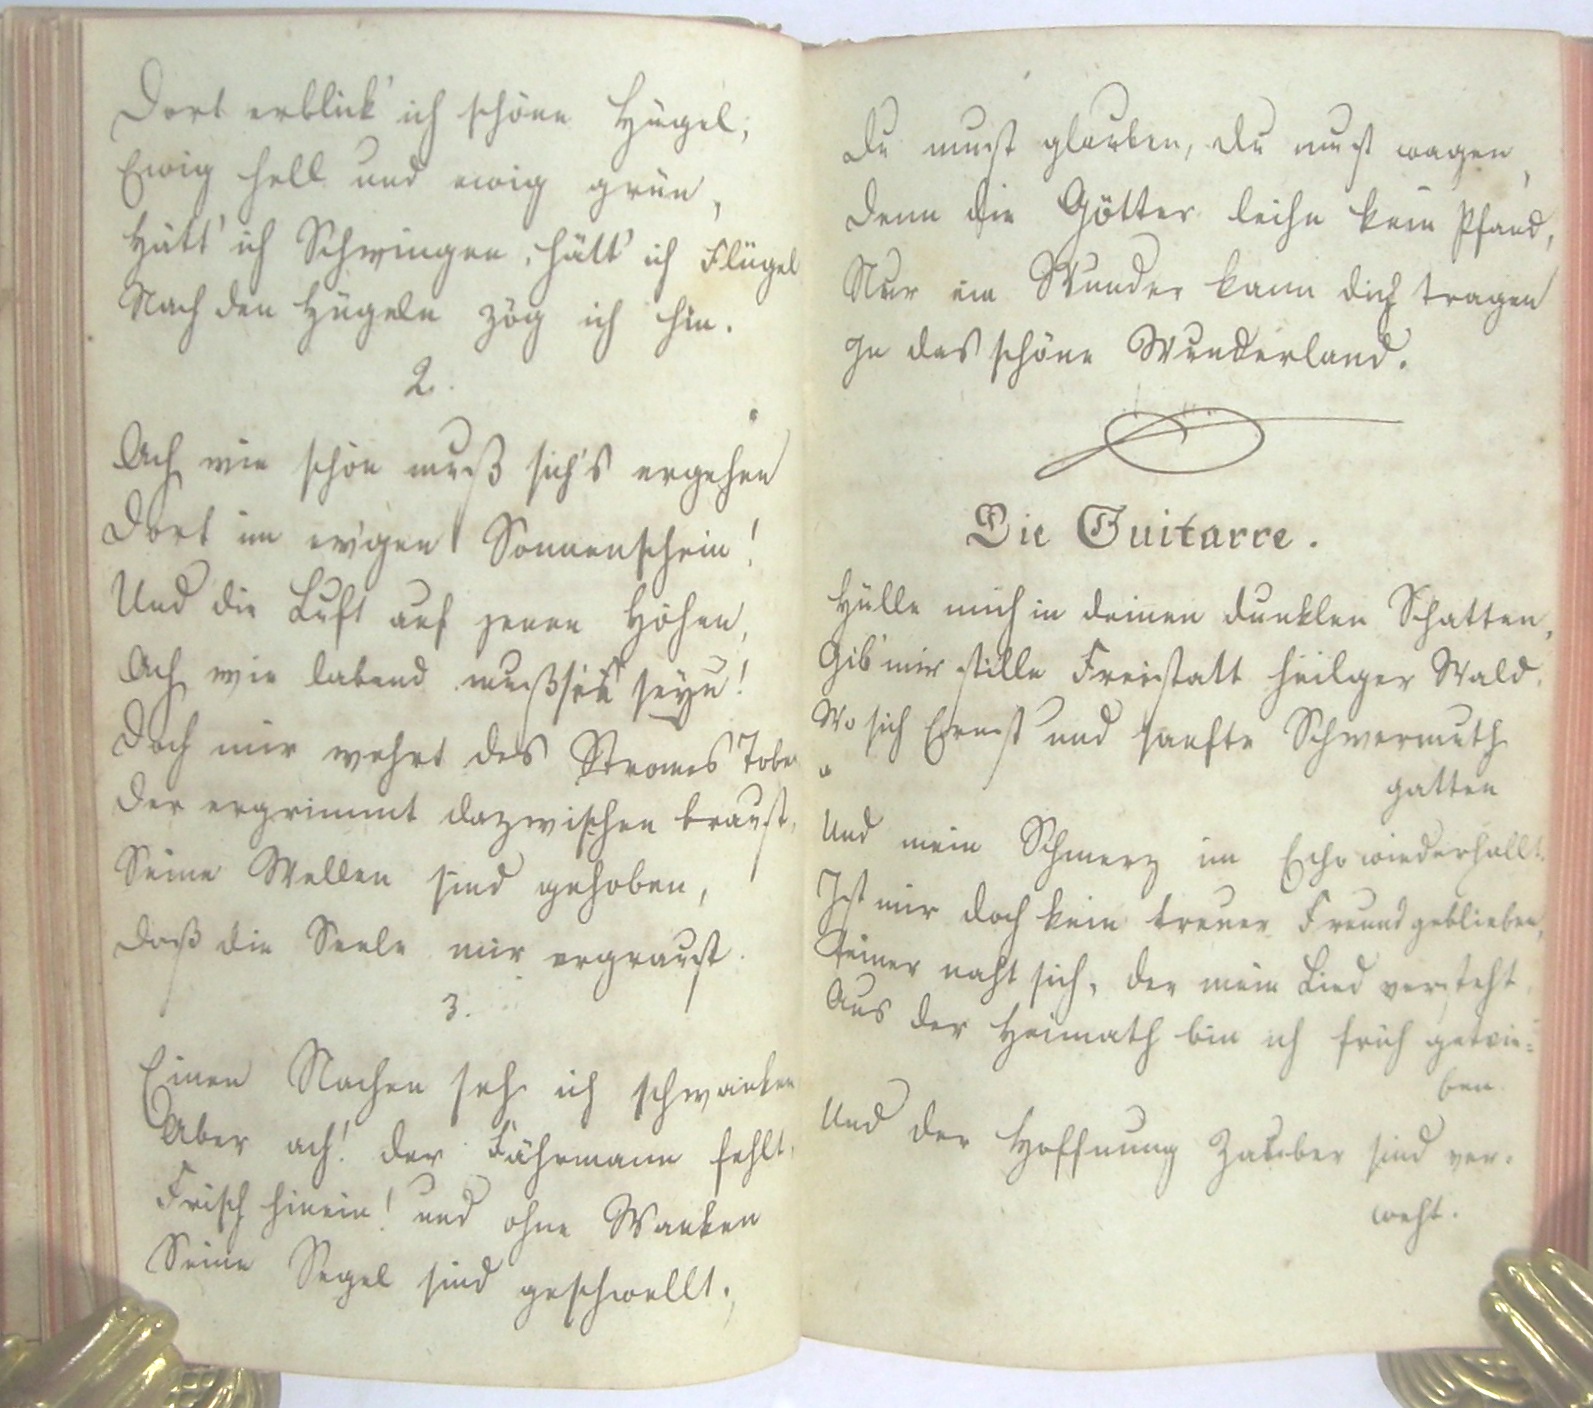 Dort erblick' ich schöne Hügel,
Ewig hell und ewig grün,
Hätt' ich Schwingen, hätt' ich Flügel
Nach den Hügeln zög ich hin.
2.
Ach wie schön muß sich's ergehen
Dort im ew'gen Sonnenschein!
Und die Luft auf jenen Höhen,
Ach wie labend muß sie seyn!
Doch mir wehrt des Stromes Tobe
Der ergrimmt dazwischen braust,
Seine Wellen sind gehoben,
Daß die Seele mir ergraust.
3.
Einen Nachen seh ich schwanken
Aber ach! der Fährmann fehlt.
Frisch hinein! und ohne Wanken
Seine Segel sind geschwellt.
Du must glauben, du must wagen,
Denn die Götter leihn kein Pfand,
Nur ein Wunder kann dich tragen
In das schöne Wunderland.
Die Guitarre.
Hülle mich in deinen dunklen Schatten,
Gib' mir stille Freistatt heilger Wald.
Wo sich Ernst und sanfte Schwermuth
gatten
Und mein Schmerz im Echo wiederhallt.
Ist mir doch kein treuer Freund geblieben,
Keiner naht sich, der mein Lied versteht
Aus der Heimath bin ich früh getrie-
ben
Und der Hoffnung Zauber sind ver-
weht.